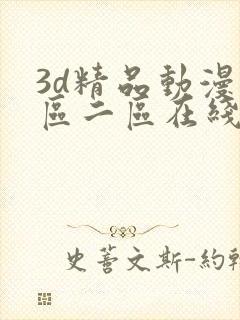 3d精品動漫
區二區在綫
史蒂文斯-約翰